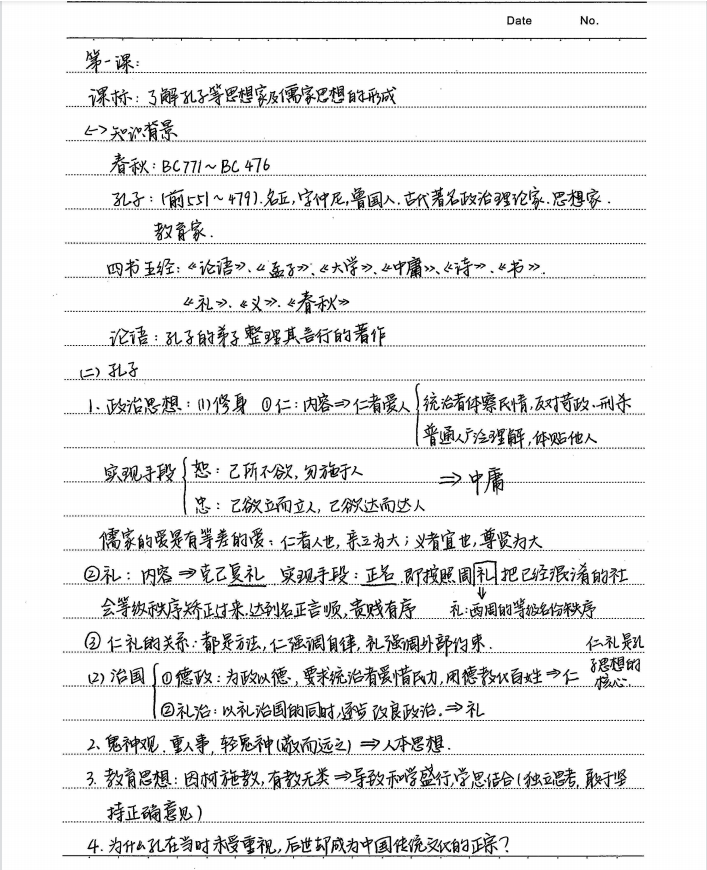 Date No.
第一课:
课标: 了解孔子等思想家及儒家思想的形成
<一>知识背景
春秋: BC771～BC 476
孔子: (前551～479).名丘,字仲尼,鲁国人.古代著名政治理论家.思想家.
教育家.
四书五经:《论语》、《孟子》、《大学》、《中庸》、《诗》、《书》.
《礼》、《义》、《春秋》
论语: 孔子的弟子整理其言行的著作
(二) 孔子
1. 政治思想: (1)修身 ①仁: 内容⇒仁者爱人 { 统治者体察民情,反对苛政、刑杀
普通人广泛理解,体贴他人
实现手段 { 恕: 己所不欲,勿施于人
⇒中庸
忠: 己欲立而立人,己欲达而达人
儒家的爱是有等差的爱: 仁者人也,亲亲为大; 义者宜也,尊贤为大
②礼: 内容⇒克己复礼 实现手段: 正名 即按照周礼把已经混淆的社
会等级秩序矫正过来.达到名正言顺,贵贱有序 礼:西周的等级名份秩序
③ 仁礼的关系: 都是方法,仁强调自律,礼强调外部约束.
仁.礼是孔
子思想的
核心.
(2) 治国 { ①德政: 为政以德,要求统治者爱惜民力,用德教化百姓⇒仁
②礼治: 以礼治国的同时,逐步改良政治.⇒礼
2、鬼神观.重人事,轻鬼神(敬而远之)⇒人本思想.
3. 教育思想: 因材施教,有教无类⇒导致私学盛行,学思结合(独立思考,敢于坚
持正确意见)
4. 为什么孔在当时未受重视,后世却成为中国传统文化的正宗?